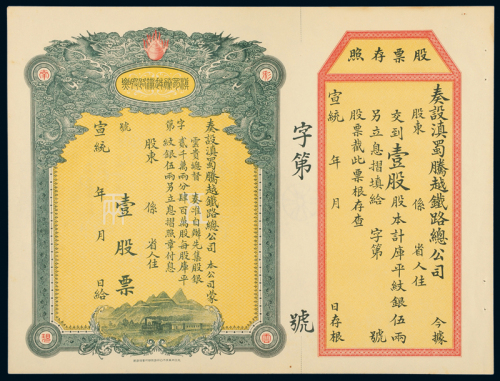 股票存照
奏設滇蜀騰越鐵路總公司 今據
股東 係 省人住
交到壹股股本計庫平紋銀伍兩
另立息摺填給 字第 號
股票截此票根存查
宣統 年 月 日存根
字第 號
奏設滇蜀騰越鐵路總公司 本公司蒙
雲貴總督 奏准自辦先集股銀
貳千萬兩分肆百萬股每股庫平
紋銀伍兩另立息摺照章付息
字第 號
股東 係 省人住
壹股票
宣統 年 月 日給